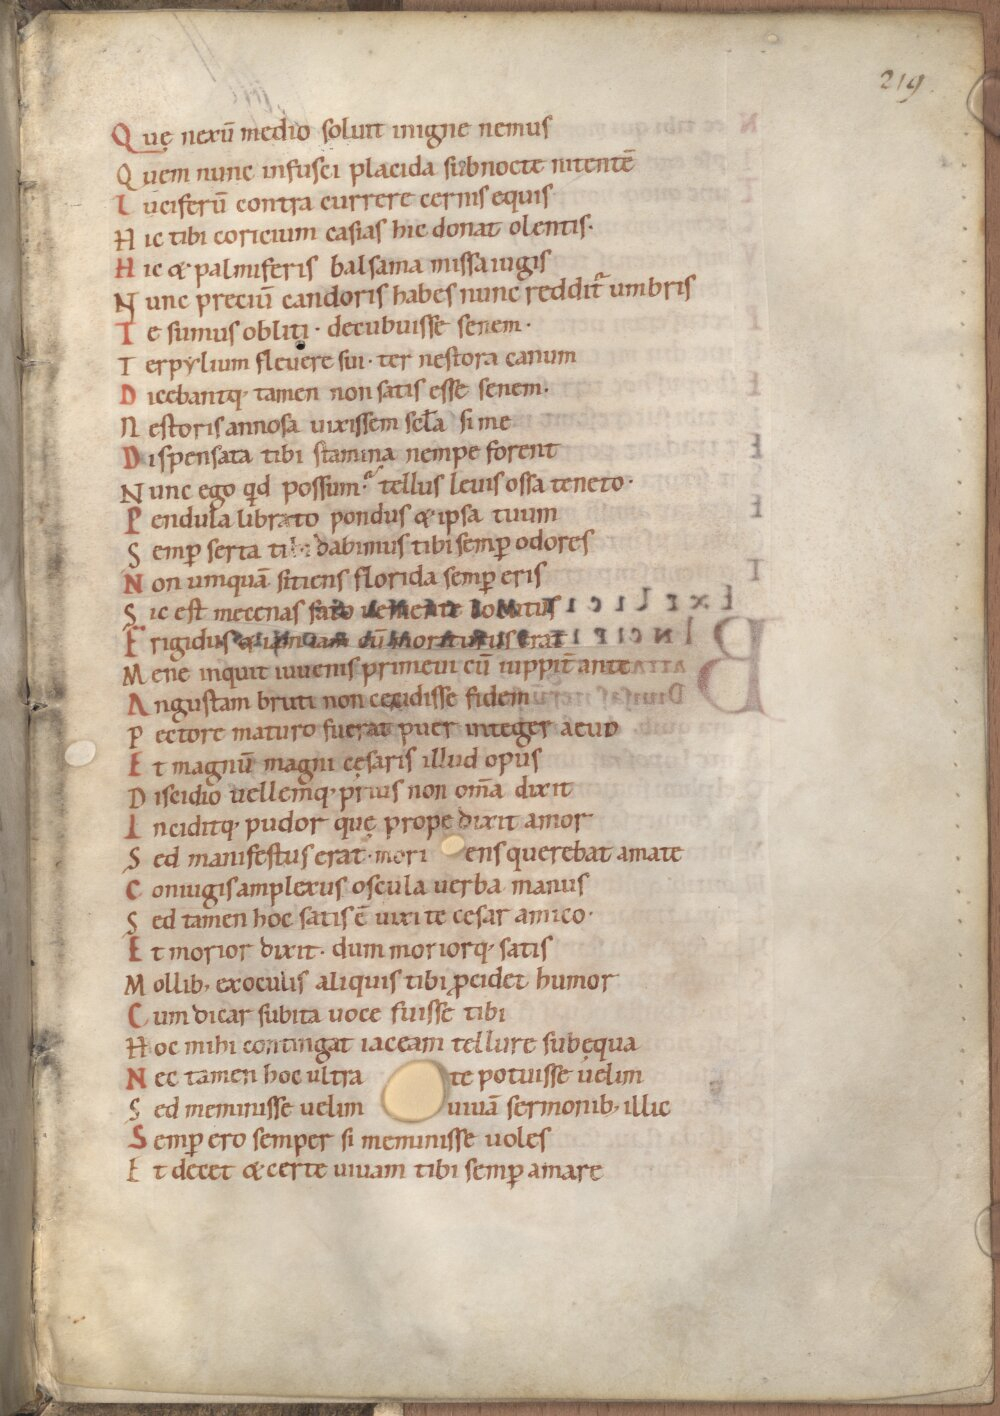 219
Quę nexū medio soluit inigne nemus
Quem nunc infusci placida subnocte nitentē
Luciferū contra currere cernis equis
Hic tibi coricium casias hic donat olentis·
Hic & palmiferis balsama missa iugis
Nunc preciū candoris habes nunc redditr̄ umbris
Te sumus obliti · decubuisse senem·
Terpylium fleuere sui · ter nestora canum
Dicebantq; tamen non satis esse senem·
Nestoris annosa uixissem secl̄a si me
Dispensata tibi stamina nempe forent
Nunc ego qd possum· tellus leuis ossa teneto·
Pendula librato pondus & ipsa tuum
Semp̱ serta tibi dabimus tibi semp̱ odores
Non umquā sitiens florida semp̱ eris
Sic est mecenas fato ueniente locutus
Frigidus & iam iam cū moriturus erat
Mene inquit iuuenis primeui cū iuppiṫ ante
Angustam bruti non cecidisse fidem
Pectore maturo fuerat puer integer aeuo
Et magnū magni cęsaris illud opus
Discidio uellemq; prius non om̄a dixit
Inciditq; pudor quę prope dixit amor
Sed manifestus erat · mori ens querebat amate
Coniugis amplexus oscula uerba manus
Sed tamen hoc satis ē uixi te cesar amico·
Et morior dixit · dum moriorq; satis
Mollib; exoculis aliquis tibi p̱cidet humor
Cum dicar subita uoce fuisse tibi
Hoc mihi contingat iaceam tellure subęqua
Nec tamen hoc ultra te potuisse uelim
Sed meminisse uelim uiuā sermonib; illic
Semp̱ ero semper si meminisse uoles
Et decet & certe uiuam tibi semp̱ amare